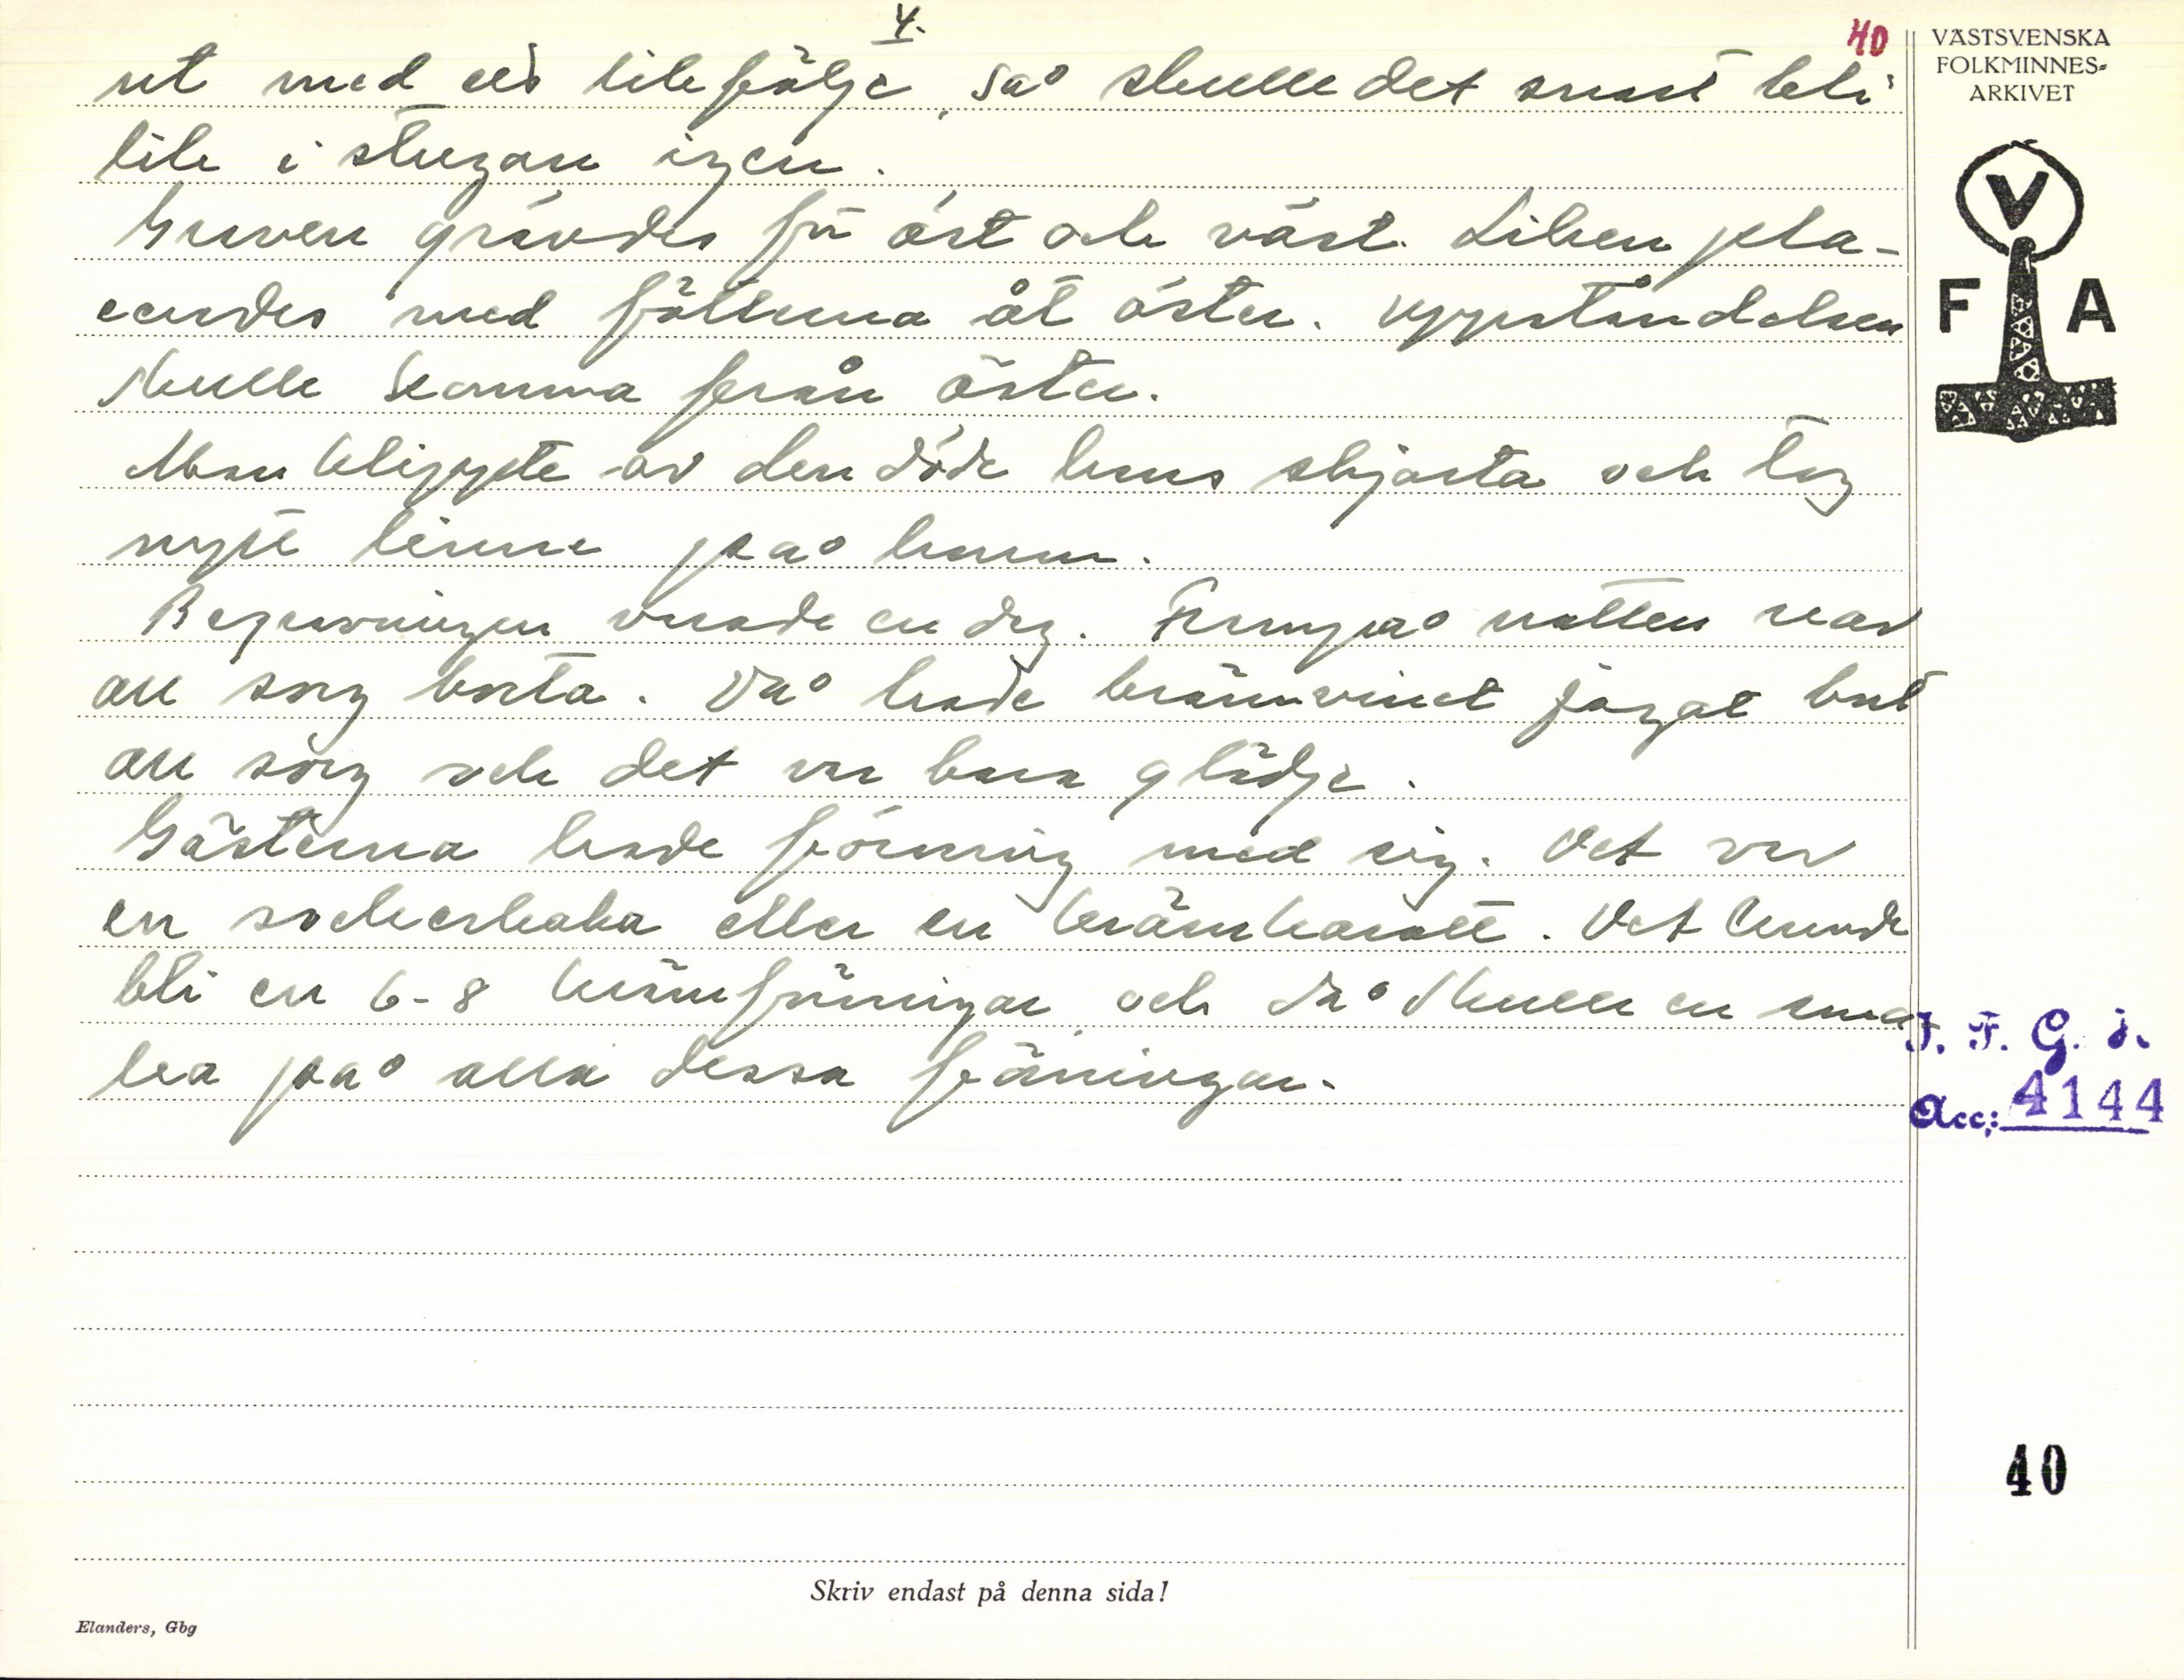 4.
40
ut med ett likfölje, så skulle det snart bli
lik i stugan igen.
Graven grävdes för öst och väst. Liken pla-
cerades med fötterna åt öster. Uppståndelsen
skulle komma från öster.
Man klippte av den döde hans skjorta och tog
nytt linne på honom.
Begravningen varade en dag. Frampå natten var
all sorg borta. Då hade brännvinet jagat bort
all sorg och det var bara glädje.
Gästerna hade förning med sig. Det var
en sockerkaka eller en krämkarott. Det kunde
bli en 6-8 krämförningar och då skulle en sma-
ka på alla dessa förningar.
VÄSTSVENSKA
FOLKMINNES-
ARKIVET
V
F A
I. F. G. H.
Acc: 4144
40
Skriv endast på denna sida!
Elanders, Gbg